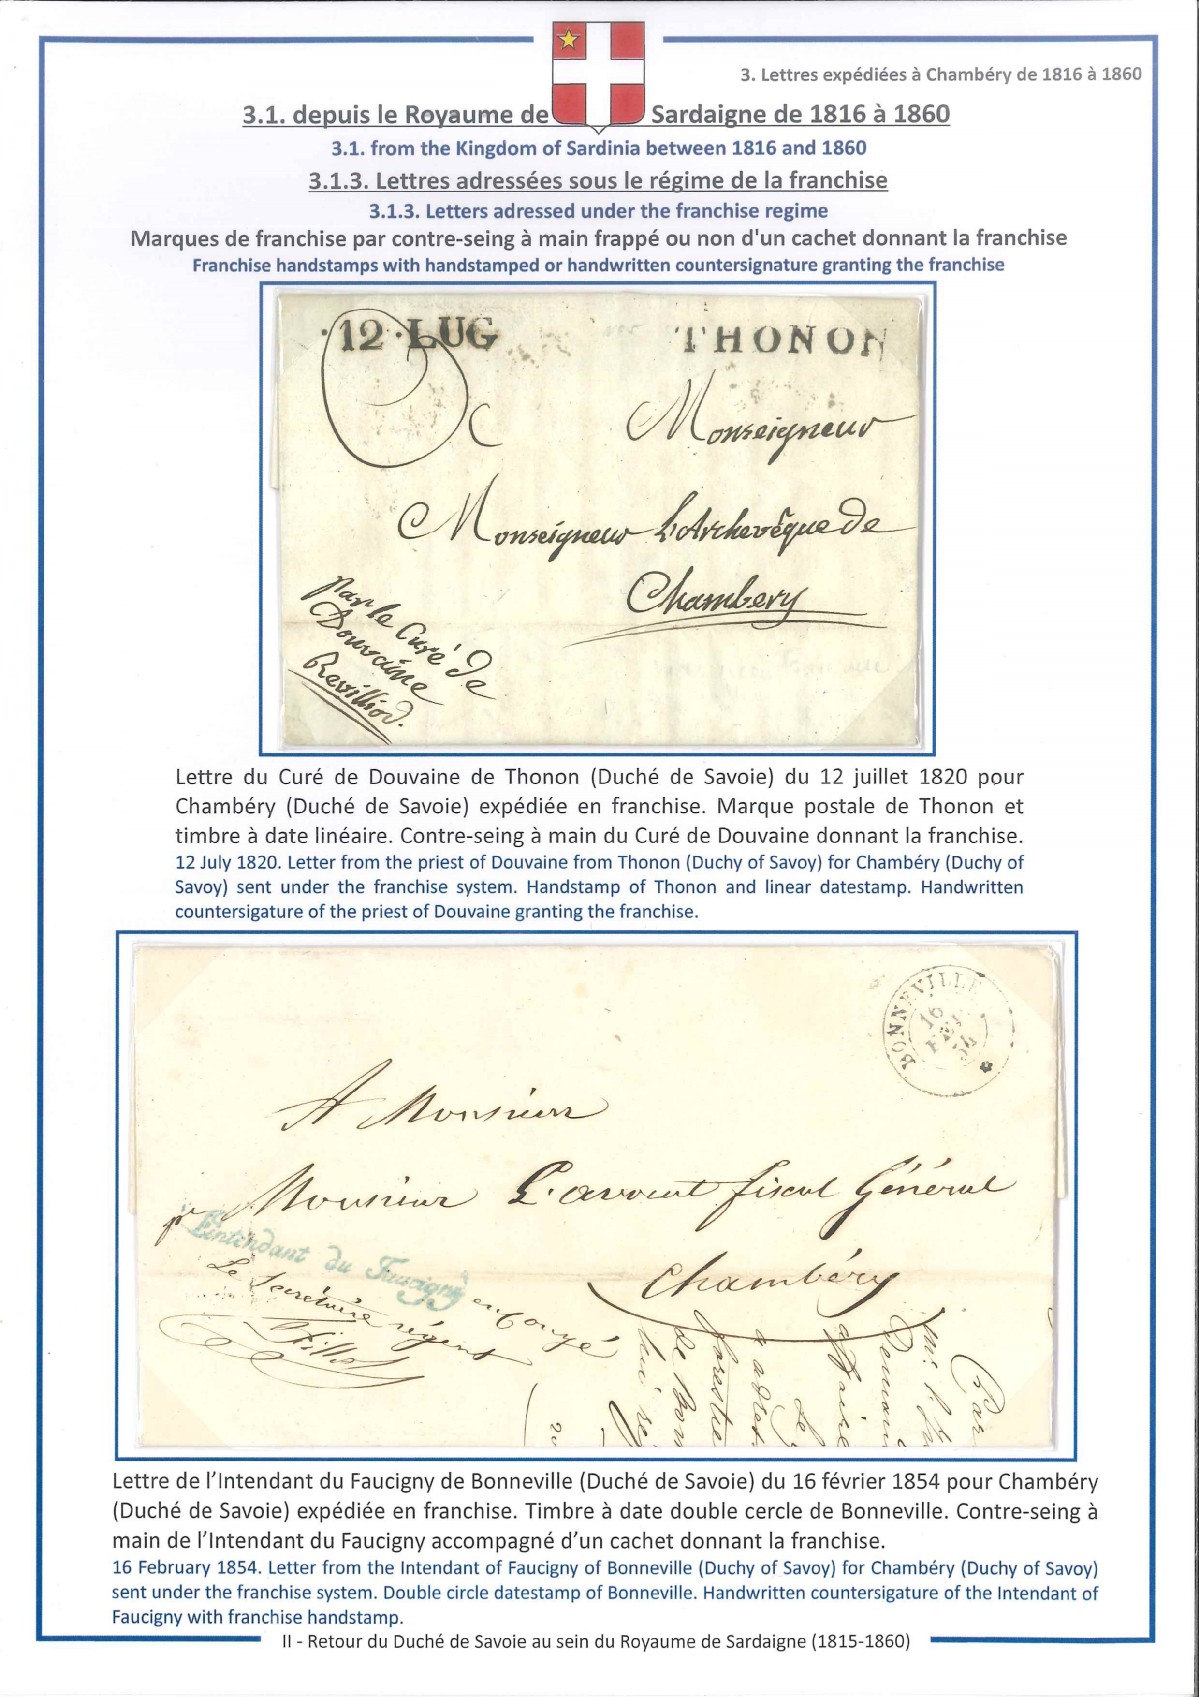 3. Lettres expédiées à Chambéry de 1816 à 1860
3.1. depuis le Royaume de Sardaigne de 1816 à 1860
3.1. from the Kingdom of Sardinia between 1816 and 1860
3.1.3. Lettres adressées sous le régime de la franchise
3.1.3. Letters adressed under the franchise regime
Marques de franchise par contre-seing à main frappé ou non d'un cachet donnant la franchise
Franchise handstamps with handstamped or handwritten countersignature granting the franchise
·12·LUG THONON
Monseigneur
Monseigneur L'Archevêque de
Chambery
par le Curé de
Douvaine
Revilliod.
Lettre du Curé de Douvaine de Thonon (Duché de Savoie) du 12 juillet 1820 pour
Chambéry (Duché de Savoie) expédiée en franchise. Marque postale de Thonon et
timbre à date linéaire. Contre-seing à main du Curé de Douvaine donnant la franchise.
12 July 1820. Letter from the priest of Douvaine from Thonon (Duchy of Savoy) for Chambéry (Duchy of
Savoy) sent under the franchise system. Handstamp of Thonon and linear datestamp. Handwritten
countersigature of the priest of Douvaine granting the franchise.
BONNEVILLE
16
FEV
54
A Monsieur
Monsieur L'avocat fiscal Général
Chambéry
pr L'intendant du Faucigny
en congé
Le Secrétaire régent
Lettre de l'Intendant du Faucigny de Bonneville (Duché de Savoie) du 16 février 1854 pour Chambéry
(Duché de Savoie) expédiée en franchise. Timbre à date double cercle de Bonneville. Contre-seing à
main de l'Intendant du Faucigny accompagné d'un cachet donnant la franchise.
16 February 1854. Letter from the Intendant of Faucigny of Bonneville (Duchy of Savoy) for Chambéry (Duchy of Savoy)
sent under the franchise system. Double circle datestamp of Bonneville. Handwritten countersigature of the Intendant of
Faucigny with franchise handstamp.
II - Retour du Duché de Savoie au sein du Royaume de Sardaigne (1815-1860)